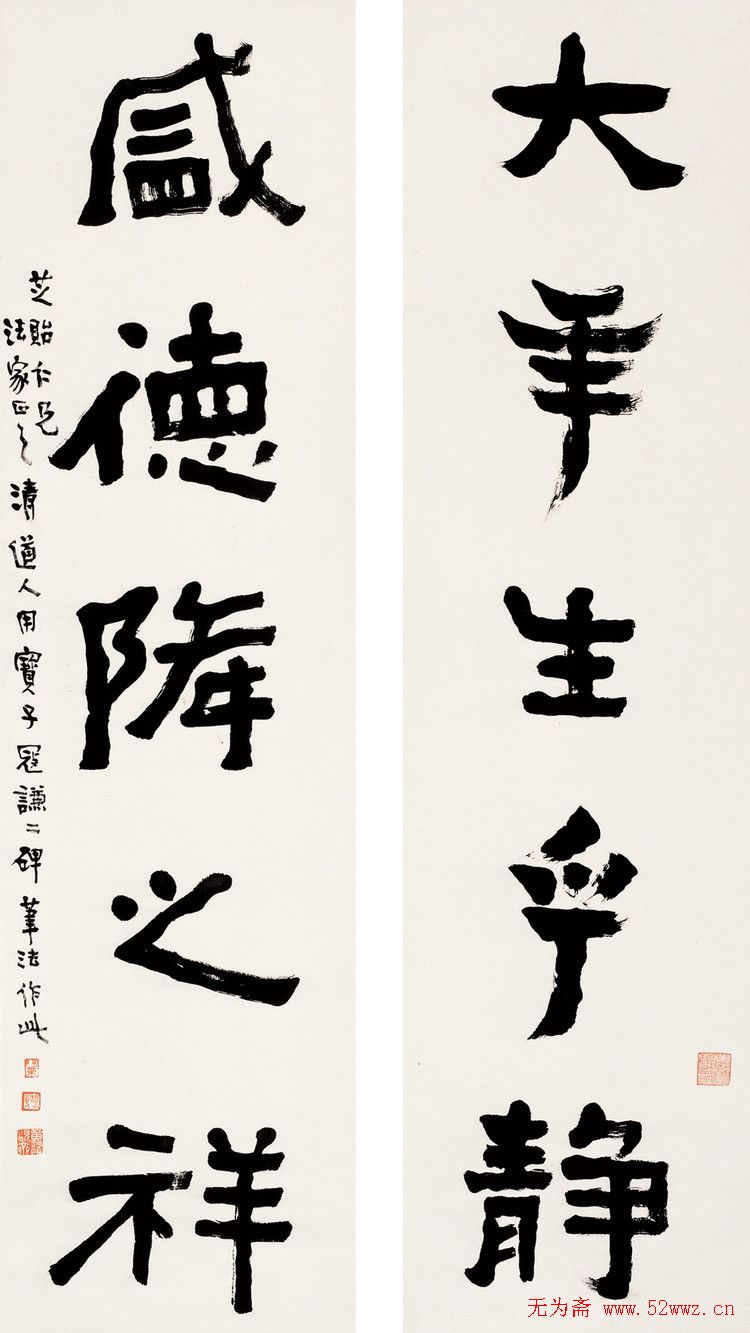 大年生乎静
盛德降之祥
芝貽仁兄
法家正之
清道人用寶子寇謙二碑筆法作此
无为斋 www.52wwz.cn